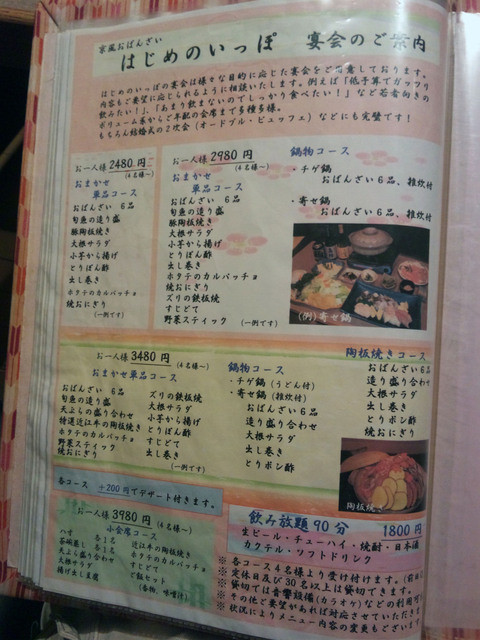 京風おばんざい
はじめのいっぽ 宴会のご案内
はじめのいっぽの宴会は様々な目的に応じた宴会をご用意しております。
内容もご要望に応じられるように相談いたします。例えば「低予算でガッツリ
飲みたい！」、「あまり飲まないのでしっかり食べたい！」など若者向きの
ボリューム系からご年配の会席まで多種多様。
もちろん結婚式の2次会（オードブル・ビュッフェ）などにも完璧です！
お一人様 2480円
（4名様～）
おまかせ
単品コース
おばんざい 6品
旬魚の造り盛
豚陶板焼き
大根サラダ
小芋から揚げ
とりぽん酢
出し巻き
ホタテのカルパッチョ
焼おにぎり
（一例です）
お一人様 2980円
（4名様～）
おまかせ
単品コース
おばんざい 6品
旬魚の造り盛
豚陶板焼き
大根サラダ
小芋から揚げ
とりぽん酢
出し巻き
ホタテのカルパッチョ
焼おにぎり
ズリの鉄板焼
すじどて
野菜スティック
（一例です）
鍋物コース
・チゲ鍋
おばんざい6品、雑炊付
・寄せ鍋
おばんざい6品、雑炊付
（例）寄せ鍋
お一人様 3480円
（4名様～）
おまかせ単品コース
おばんざい 6品
旬魚の造り盛
天ぷらの盛り合わせ
特選近江牛の陶板焼き
ホタテのカルパッチョ
野菜スティック
焼おにぎり
ズリの鉄板焼
大根サラダ
小芋から揚げ
とりぽん酢
すじどて
出し巻き
（一例です）
鍋物コース
・チゲ鍋（うどん付）
・寄せ鍋（雑炊付）
おばんざい6品
造り盛り合わせ
大根サラダ
出し巻き
とりポン酢
陶板焼きコース
おばんざい 6品
造り盛り合わせ
大根サラダ
出し巻き
とりポン酢
焼おにぎり
陶板焼き
各コース +200円でデザート付きます。
お一人様 3980円
（4名様～）
小会席コース
八寸 各1名
茶碗蒸し 各1名
天ぷら盛り合わせ
大根サラダ
揚げ出し豆腐
近江牛の陶板焼き
ホタテのカルパッチョ
すじどて
ご飯セット
（香物、味噌汁）
飲み放題90分 1800円
生ビール・チューハイ・焼酎・日本酒
カクテル・ソフトドリンク
※ 各コース4名様より受け付けます。
※ 定休日及び30名以上は貸切できます。
※ 貸切では音響設備（カラオケ）などの利用可
※ その他ご要望があれば対応させていただきま
状況によりメニュー内容の変更もございます